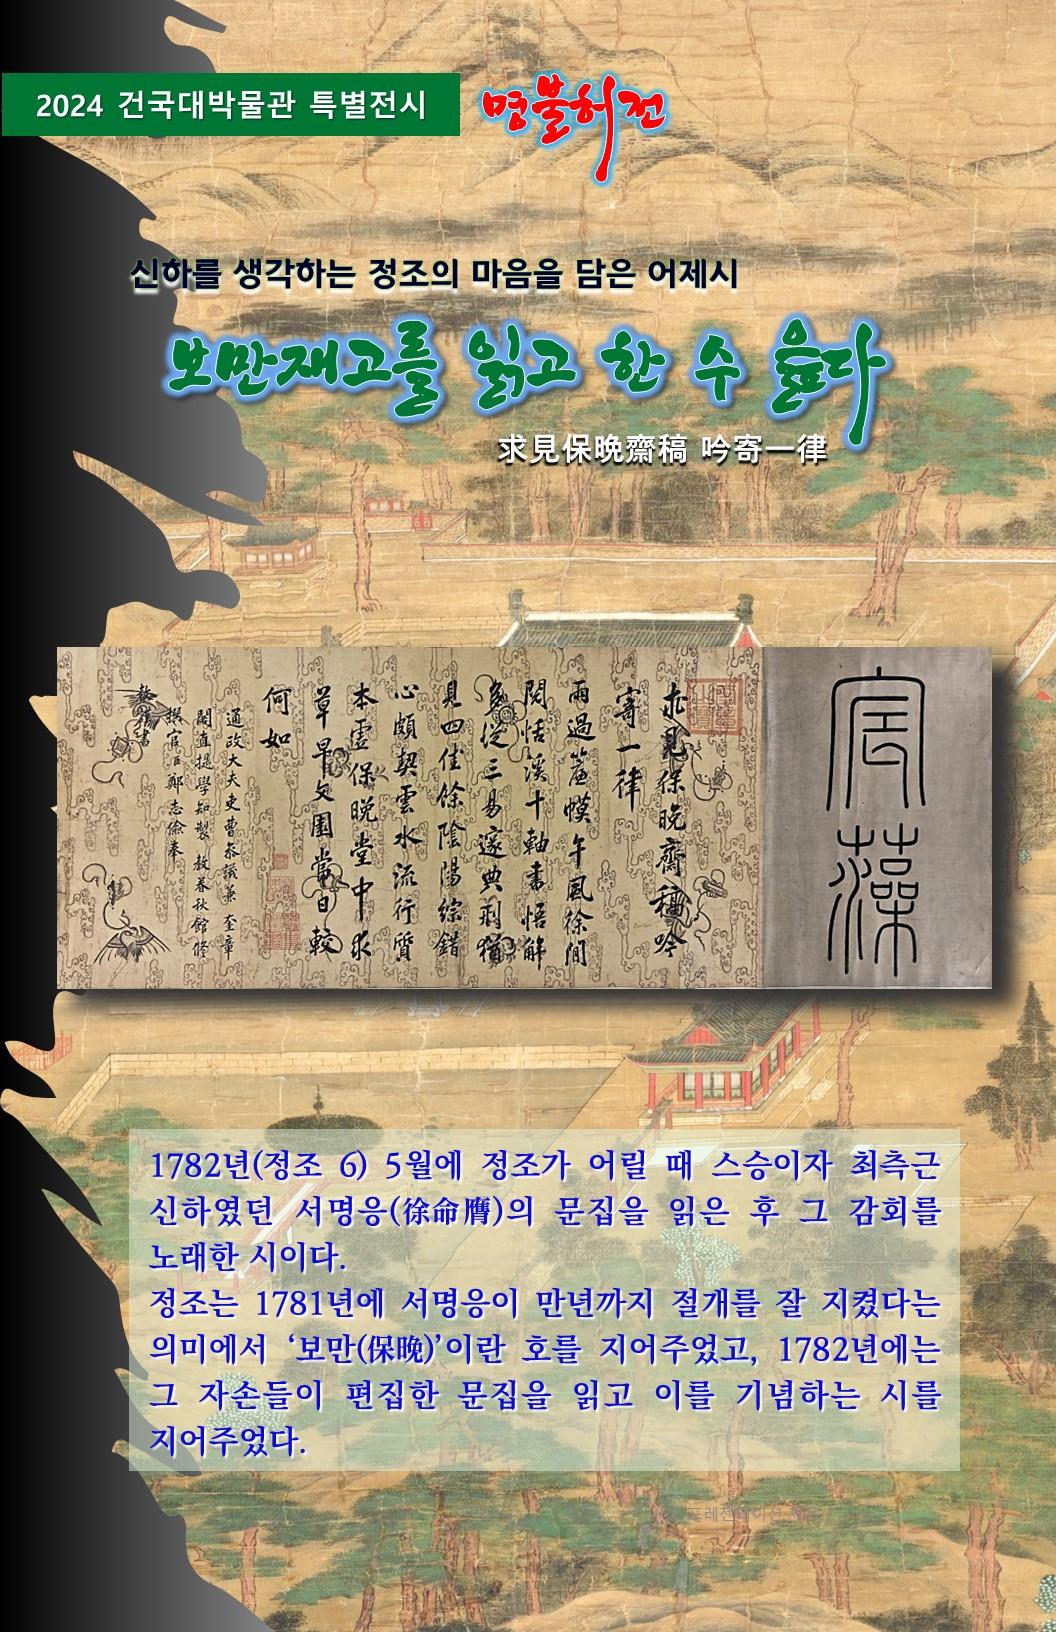 2024 건국대박물관 특별전시
명불허전
신하를 생각하는 정조의 마음을 담은 어제시
보만재고를 읽고 한 수 읊다
求見保晩齋稿 吟寄一律
宸藻
求見保晚齋稿吟
寄一律
雨過簾幙午風徐閒
閱恬溪十軸書悟解
多從三易邃典刑猶
見四佳餘陰陽綜錯
心頗契雲水流行質
本虛保晚堂中求
草早文園當日較
何如
通政大夫吏曹參議兼 奎章
閣直提學知製 敎春秋館修
撰官臣鄭志儉奉
敎謹書
1782년(정조 6) 5월에 정조가 어릴 때 스승이자 최측근
신하였던 서명응(徐命膺)의 문집을 읽은 후 그 감회를
노래한 시이다.
정조는 1781년에 서명응이 만년까지 절개를 잘 지켰다는
의미에서 ‘보만(保晩)’이란 호를 지어주었고, 1782년에는
그 자손들이 편집한 문집을 읽고 이를 기념하는 시를
지어주었다.